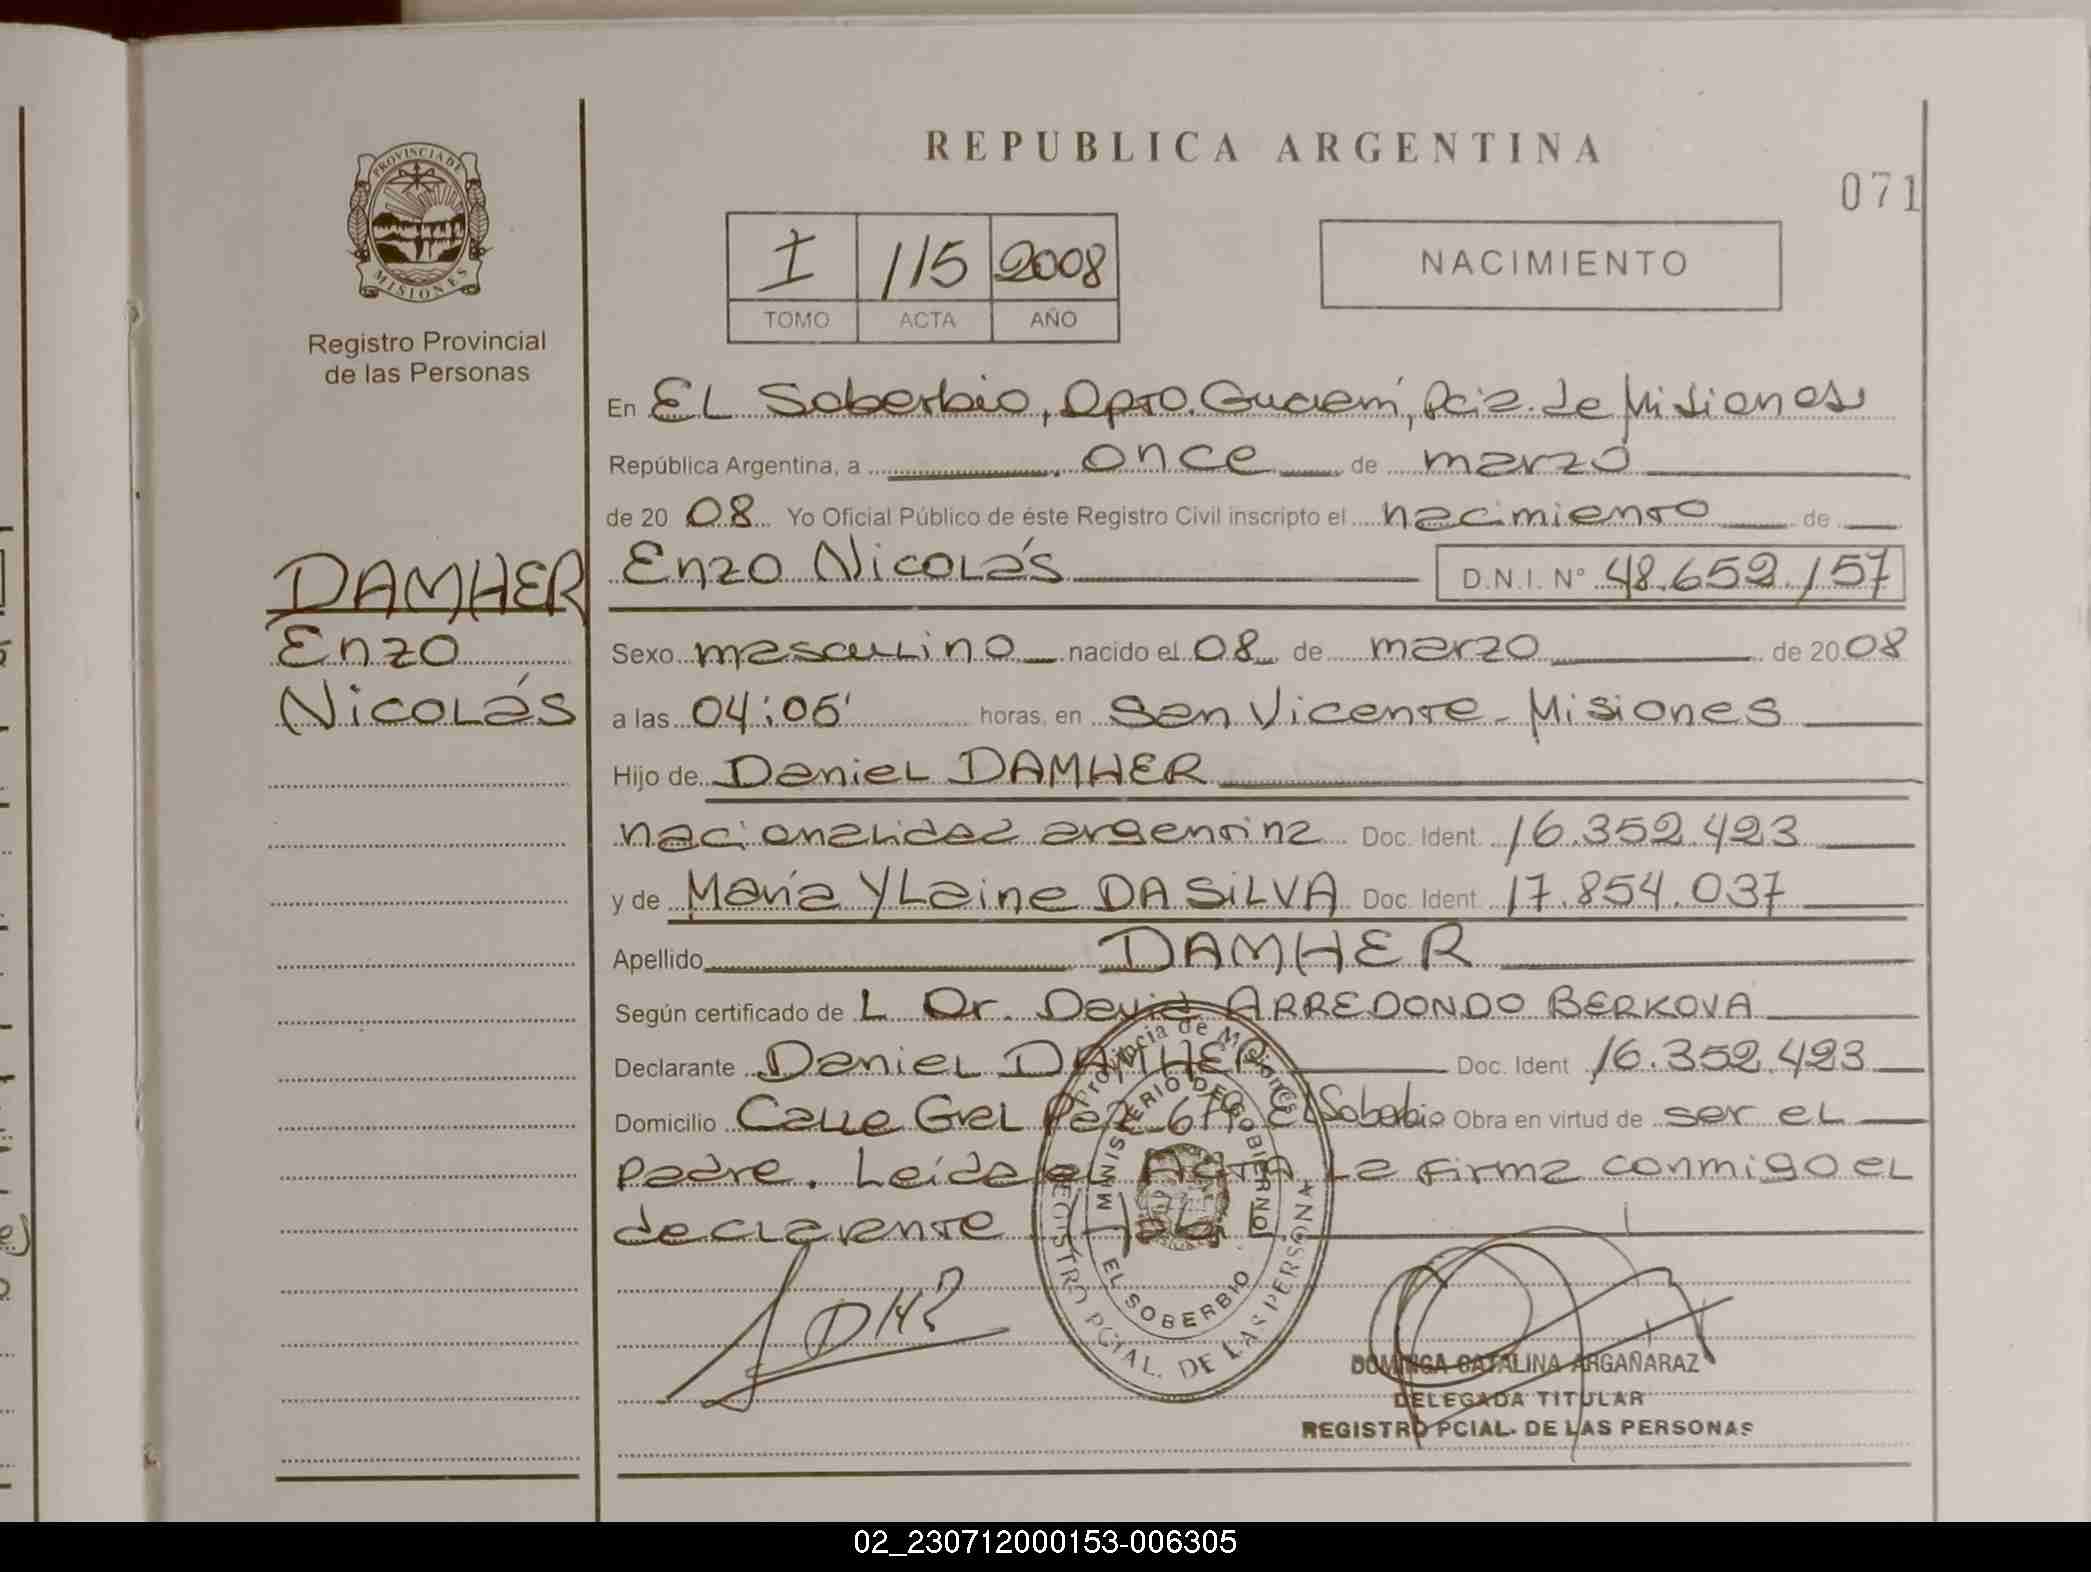 REPUBLICA ARGENTINA
071
PROVINCIA DE
MISIONES
Registro Provincial
de las Personas
I 115 2008
TOMO ACTA AÑO
NACIMIENTO
En EL Soberbio, Dpto. Guaraní, Pcia. de Misiones
República Argentina, a once de marzo
de 2008 Yo Oficial Público de éste Registro Civil inscripto el nacimiento de
Enzo Nicolás D.N.I. Nº 48.652.157
DAMHER
Enzo
Nicolás
Sexo masculino nacido el 08 de marzo de 2008
a las 04:05' horas, en San Vicente - Misiones
Hijo de Daniel DAMHER
nacionalidad argentina Doc. Ident. 16.352.423
y de María YLaine DA SILVA Doc. Ident. 17.854.037
Apellido DAMHER
Según certificado de L Dr. David ARREDONDO BERKOVA
Declarante Daniel DAMHER Doc. Ident 16.352.423
Domicilio Calle Gral Paz 679 El Soberbio Obra en virtud de ser el
padre. Leída el Acta la firma conmigo el
declarante
Provincia de Misiones
MINISTERIO DE GOBIERNO
EL SOBERBIO
REGISTRO PCIAL. DE LAS PERSONA
DOMINGA CATALINA ARGAÑARAZ
DELEGADA TITULAR
REGISTRO PCIAL. DE LAS PERSONAS
02_230712000153-006305